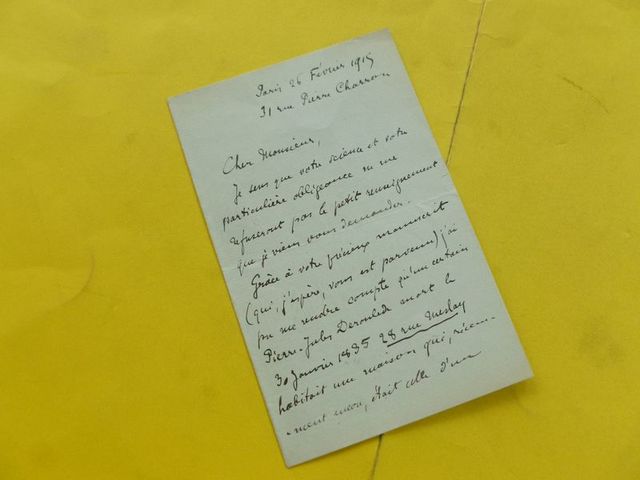 Paris 26 Février 1915
31 rue Pierre Charron
Cher Monsieur,
Je sens que votre science et votre
particulière obligeance ne me
refuseront pas le petit renseignement
que je viens vous demander.
Grâce à votre précieux manuscrit
(qui, j'espère, vous est parvenu) j'ai
pu me rendre compte qu'un certain
Pierre-Jules Deroulede mort le
30 Janvier 1835 28 rue Meslay
habitait une maison qui, récem-
-ment encore, était celle d'un